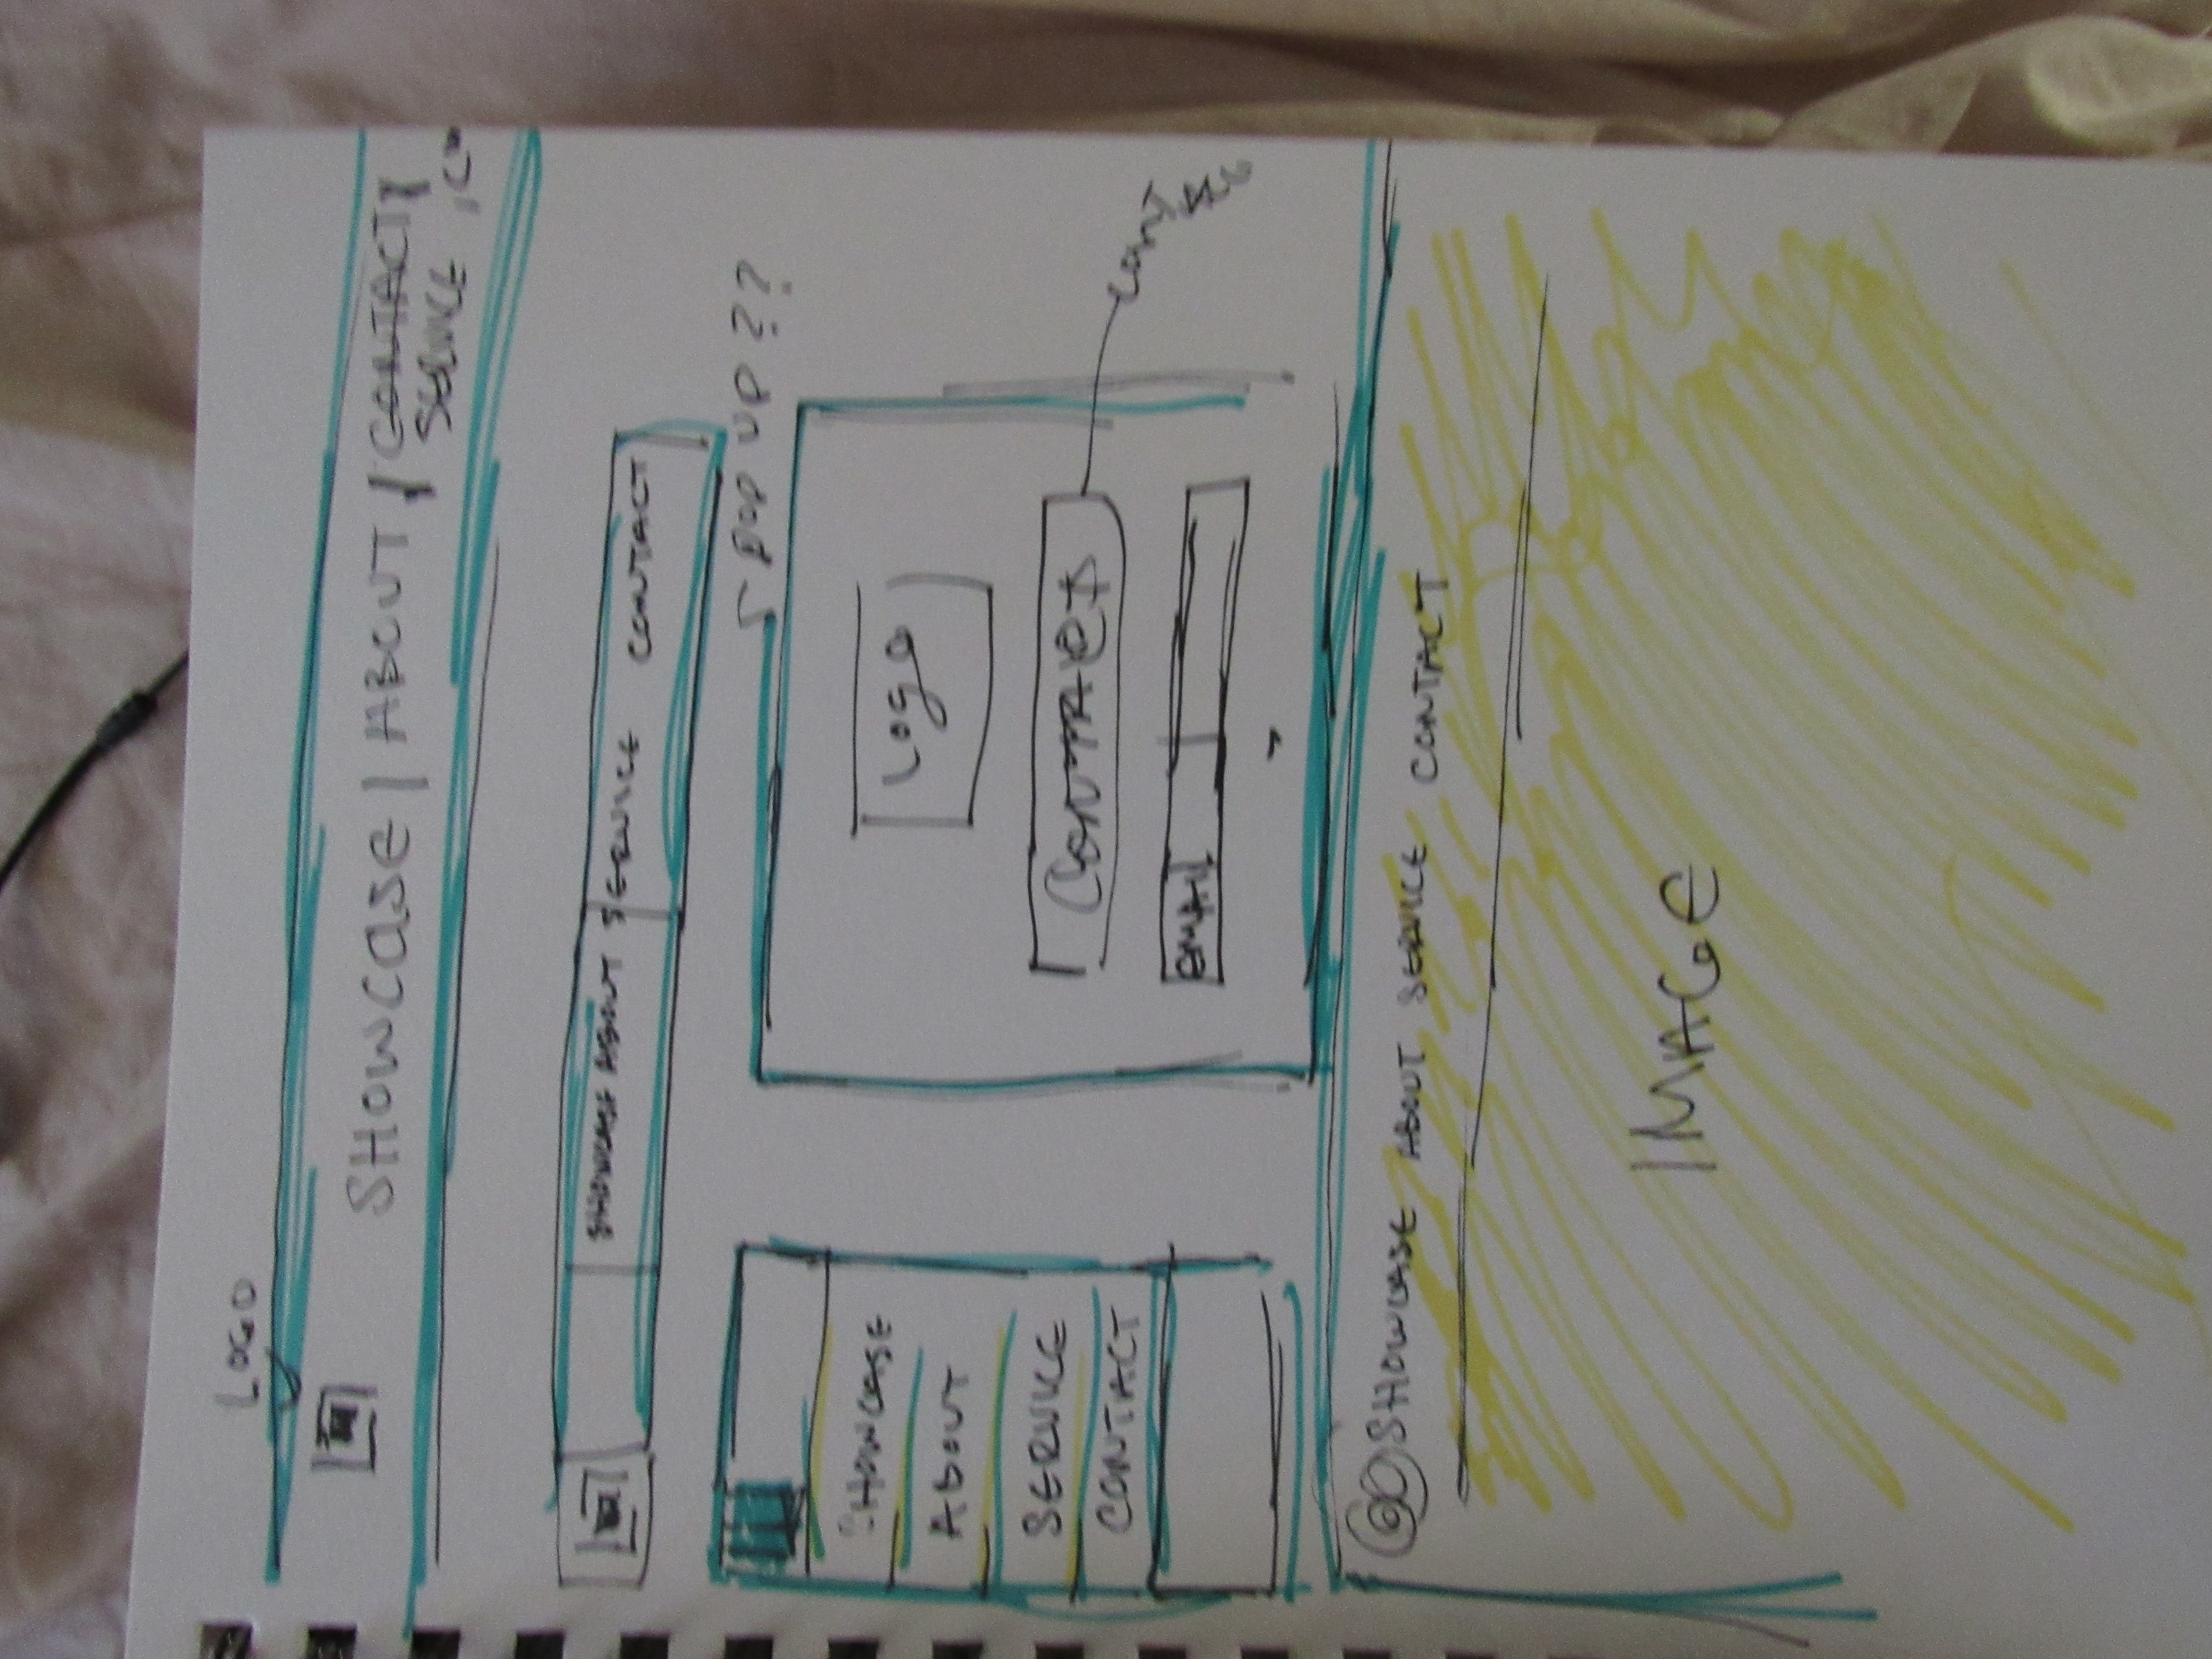 LOGO
SHOWCASE | ABOUT | CONTACT |
SERVICE
SHOWCASE ABOUT SERVICE CONTACT
POP UP ??
Logo
EMAIL
SHOWCASE
ABOUT
SERVICE
CONTACT
SHOWCASE ABOUT SERVICE CONTACT
IMAGE